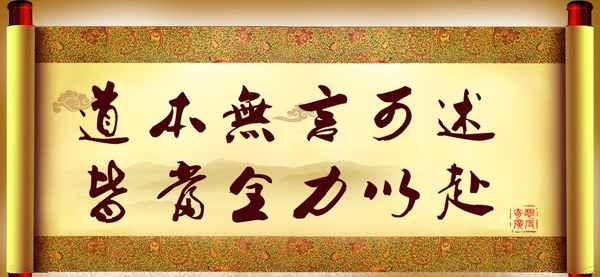 道本無言可述
皆當全力以赴